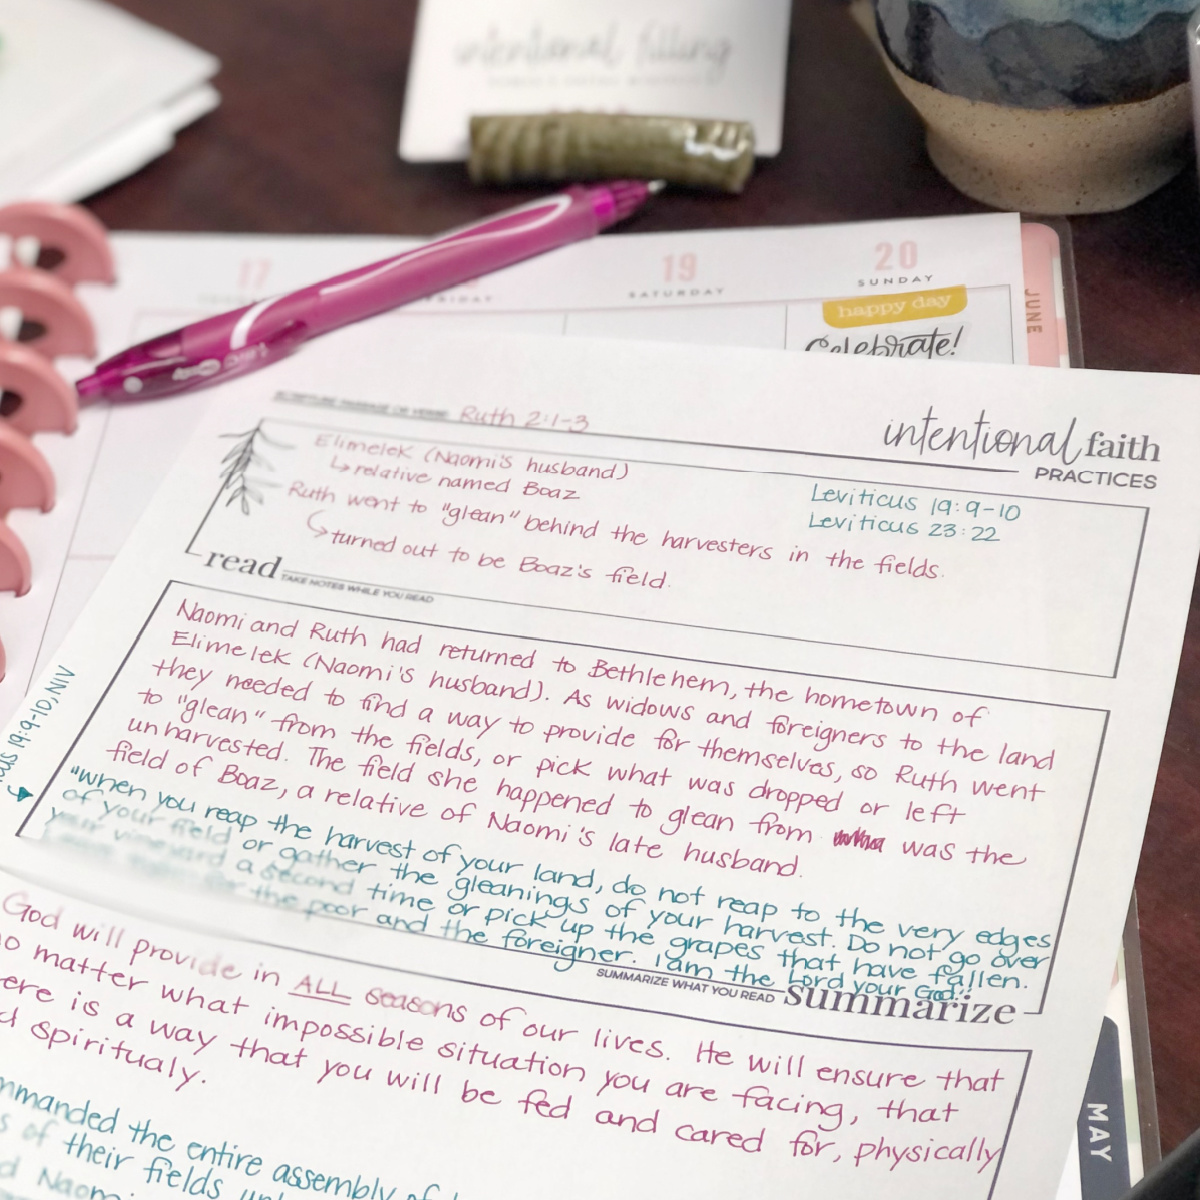 intentional filling
17
19
SATURDAY
20
SUNDAY
JUNE
happy day
Celebrate!
SCRIPTURE PASSAGE OR VERSE Ruth 2:1-3
intentional faith
PRACTICES
Elimelek (Naomi's husband)
↳ relative named Boaz
Leviticus 19:9-10
Leviticus 23:22
Ruth went to "glean" behind the harvesters in the fields.
↳ turned out to be Boaz's field.
read TAKE NOTES WHILE YOU READ
Naomi and Ruth had returned to Bethlehem, the hometown of
Elimelek (Naomi's husband). As widows and foreigners to the land
they needed to find a way to provide for themselves, so Ruth went
to "glean" from the fields, or pick what was dropped or left
unharvested. The field she happened to glean from was the
field of Boaz, a relative of Naomi's late husband.
19:9-10, NIV
"when you reap the harvest of your land, do not reap to the very edges
of your field or gather the gleanings of your harvest. Do not go over
your vineyard a second time or pick up the grapes that have fallen.
for the poor and the foreigner. I am the Lord your God."
SUMMARIZE WHAT YOU READ summarize
God will provide in ALL seasons of our lives. He will ensure that
no matter what impossible situation you are facing, that
ere is a way that you will be fed and cared for, physically
d spiritualy.
mmanded the entire assembly of
s of their fields
d Naomi
MAY